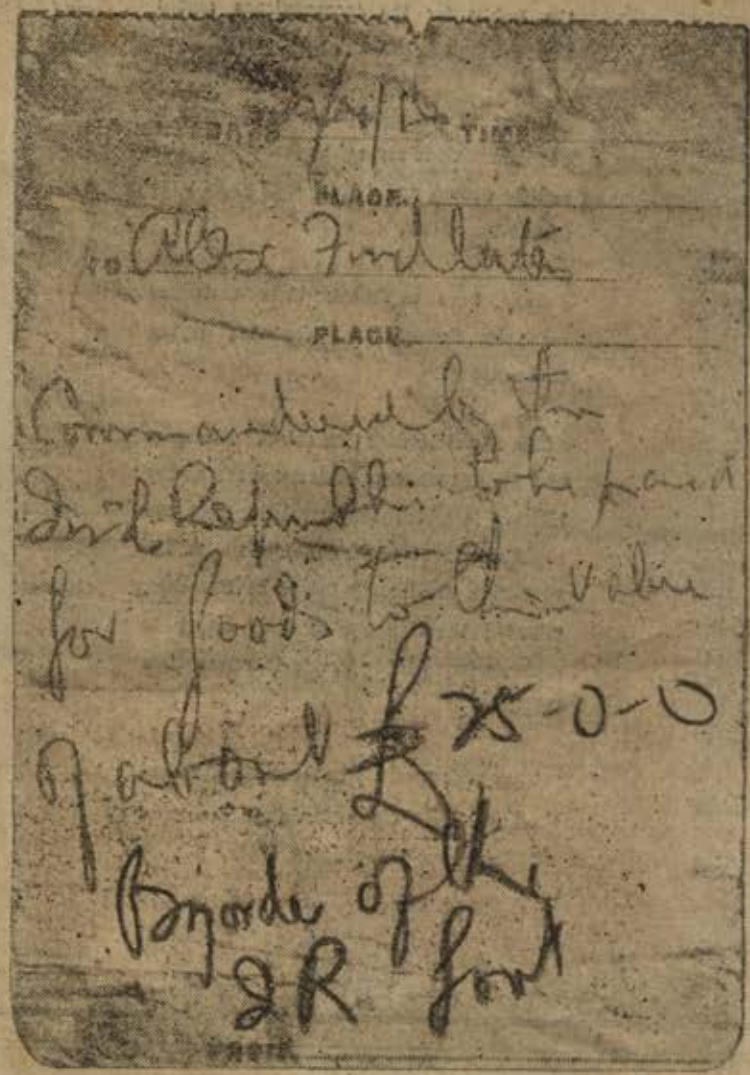 DATE 24/4/16 TIME
PLACE
TO Alex Findlater
PLACE
Commandeered by the
Irish Republic to be paid
for goods to the value
of about £25-0-0
By order of the
I R Govt